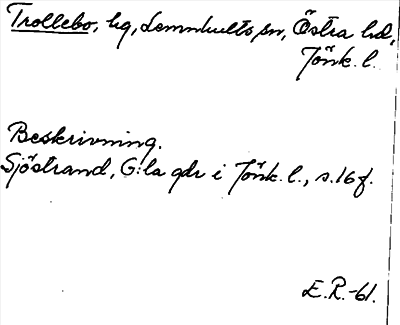 Trollebo, hg, Lemnhults sn, Östra hd,
Jönk. l.
Beskrivning.
Sjöstrand, G:la gdr i Jönk. l., s. 16 f.
E.R.-61.